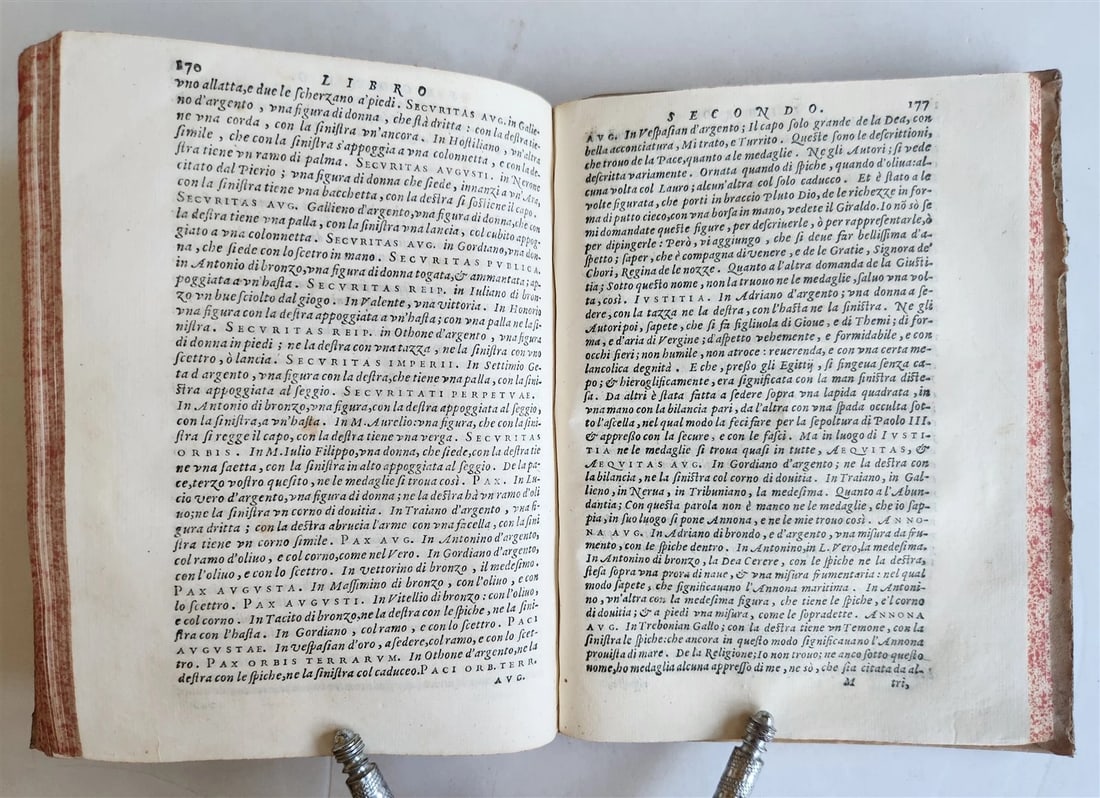 170
LIBRO
vno allatta, e due le ſcherzano a'piedi. SECVRITAS AVG. in Gallie-
no d'argento, vna figura di donna, che ſtà dritta: con la deſtra tie-
ne vna corda, con la ſiniſtra vn'ancora. In Hoſtiliano, vn'altra
ſimile, che con la ſiniſtra s'appoggia a vna colonnetta, e con la de-
ſtra tiene vn ramo di palma. SECVRITAS AVGVSTI. in Nerone
citato dal Pierio; vna figura di donna che ſiede, innanzi a vn'Ara,
con la ſiniſtra tiene vna bacchetta, con la deſtra ſi ſoſtiene il capo.
SECVRITAS AVG. Gallieno d'argento, vna figura di donna, che con
la deſtra tiene vna palla, con la ſiniſtra vna lancia, col cubito appog-
giato a vna colonnetta. SECVRITAS AVG. in Gordiano, vna don-
na, che ſiede con lo ſcetro in mano. SECVRITAS PVBLICA.
in Antonio di bronzo, vna figura di donna togata, & ammantata; ap-
poggiata a vn'haſta. SECVRITAS REIP. in Iuliano di bron-
zo vn bue ſciolto dal giogo. In Valente, vna vittoria. In Honorio
vna figura con la deſtra appoggiata a vn'haſta; con vna palla ne la ſi-
niſtra. SECVRITAS REIP. in Othone d'argento, vna figura
di donna in piedi; ne la deſtra con vna tazza, ne la ſiniſtra con vno
ſcettro, ò lancia. SECVRITAS IMPERII. In Settimio Ge-
ta d'argento, vna figura con la deſtra, che tiene vna palla, con la ſini-
ſtra appoggiata al ſeggio. SECVRITATI PERPETVAE.
In Antonio di bronzo, vna figura, con la deſtra appoggiata al ſeggio,
con la ſiniſtra, a vn'haſta. In M. Aurelio: vna figura, che con la ſini-
ſtra ſi regge il capo, con la deſtra tiene vna verga. SECVRITAS
ORBIS. In M. Iulio Filippo, vna donna, che ſiede, con la deſtra tie
ne vna ſaetta, con la ſiniſtra in alto appoggiata al ſeggio. De la pa-
ce, terzo voſtro queſito, ne le medaglie ſi troua così. PAX. In Lu-
cio vero d'argento, vna figura di donna; ne la deſtra hà vn ramo d'oli
uo; ne la ſiniſtra vn corno di douitia. In Traiano d'argento, vna fi-
gura dritta; con la deſtra abrucia l'arme con vna facella, con la ſini
ſtra tiene vn corno ſimile. PAX AVG. In Antonino d'argento,
col ramo d'oliuo, e col corno, come nel Vero. In Gordiano d'argento,
con l'oliuo, e con lo ſcettro. In Vettorino di bronzo, il medeſimo.
PAX AVGVSTA. In Maſſimino di bronzo, con l'oliuo, e con
lo ſcettro. PAX AVGVSTI. In Vitellio di bronzo: con l'oliuo,
e col corno. In Tacito di bronzo, ne la deſtra con le ſpiche, ne la ſini-
ſtra con l'haſta. In Gordiano, col ramo, e con lo ſcettro. PACI
AVGVSTAE. in veſpaſian d'oro, a ſedere, col ramo, e con lo ſcet-
tro. PAX ORBIS TERRARVM. In Othone d'argento, ne la
deſtra con le ſpiche, ne la ſiniſtra col caduceo. PACI ORB. TERR.
AVG.
SECONDO.
177
AVG. In Veſpaſian d'argento; Il capo ſolo grande de la Dea, con
bella acconciatura, Mitrato, e Turrito. Queſte ſono le deſcrittioni,
che trouo de la Pace, quanto a le medaglie. Ne gli Autori; ſi vede
deſcritta variamente. Ornata quando di ſpiche, quando d'oliua: al-
cuna volta col Lauro; alcun'altra col ſolo caducco. Et è ſtato a le
volte figurata, che porti in braccio Pluto Dio, de le richezze in for-
ma di putto cieco, con vna borſa in mano, vedete il Giraldo. Io nō sò ſe
mi domandate queſte figure, per deſcriuerle, ò per rappreſentarle, ò
per dipingerle: Però, vi aggiungo, che ſi deue far belliſſima d'a-
ſpetto; ſaper, che è compagna di venere, e de le Gratie, Signora de'
Chori, Regina de le nozze. Quanto a l'altra domanda de la Giuſti-
tia; Sotto queſto nome, non la truouo ne le medaglie, ſaluo vna vol-
ta, così. IVSTITIA. In Adriano d'argento; vna donna a ſe-
dere, con la tazza ne la deſtra, con l'haſta ne la ſiniſtra. Ne gli
Autori poi, ſapete, che ſi fa figliuola di Gioue, e di Themi; di for-
ma, e d'aria di Vergine; d'aſpetto vehemente, e formidabile, e con
occhi fieri; non humile, non atroce: reuerenda, e con vna certa me-
lancolica degnità. E che, preſſo gli Egittij, ſi fingeua ſenza ca-
po; & hieroglificamente, era ſignificata con la man ſiniſtra diſte-
ſa. Da altri è ſtata fatta a ſedere ſopra vna lapida quadrata, in
vna mano con la bilancia pari, da l'altra con vna ſpada occulta ſot-
to l'aſcella, nel qual modo la feci fare per la ſepoltura di Paolo III.
& appreſſo con la ſecure, e con le faſci. Ma in luogo di IVSTI-
TIA ne le medaglie ſi troua quaſi in tutte, AEQVITAS, &
AEQVITAS AVG. In Gordiano d'argento; ne la deſtra con
la bilancia, ne la ſiniſtra col corno di douitia. In Traiano, in Gal-
lieno, in Nerua, in Tribuniano, la medeſima. Quanto a l'Abun-
dantia; Con queſta parola non è manco ne le medaglie, che io ſap-
pia, in ſuo luogo ſi pone Annona, e ne le mie trouo così. ANNO-
NA AVG. In Adriano di brondo, e d'argento, vna miſura da fru-
mento, con le ſpiche dentro. In Antonino, in L. Vero, la medeſima.
In Antonino di bronzo, la Dea Cerere, con le ſpiche ne la deſtra,
ſteſa ſopra vna prora di naue, & vna miſura frumentaria: nel qual
modo ſapete, che ſignificauano l'Annona maritima. In Antoni-
no, vn'altra con la medeſima figura, che tiene le ſpiche, e'l corno
di douitia; & a piedi vna miſura, come le ſopradette. ANNONA
AVG. In Trebonian Gallo; con la deſtra tiene vn Temone, con la
ſiniſtra le ſpiche: che ancora in queſto modo ſignificauano l'Annona
prouiſta di mare. De la Religione; Io non trouo; ne anco ſotto queſto
nome, ho medaglia alcuna appreſſo di me, ne sò, che ſia citata da al-
M tri,